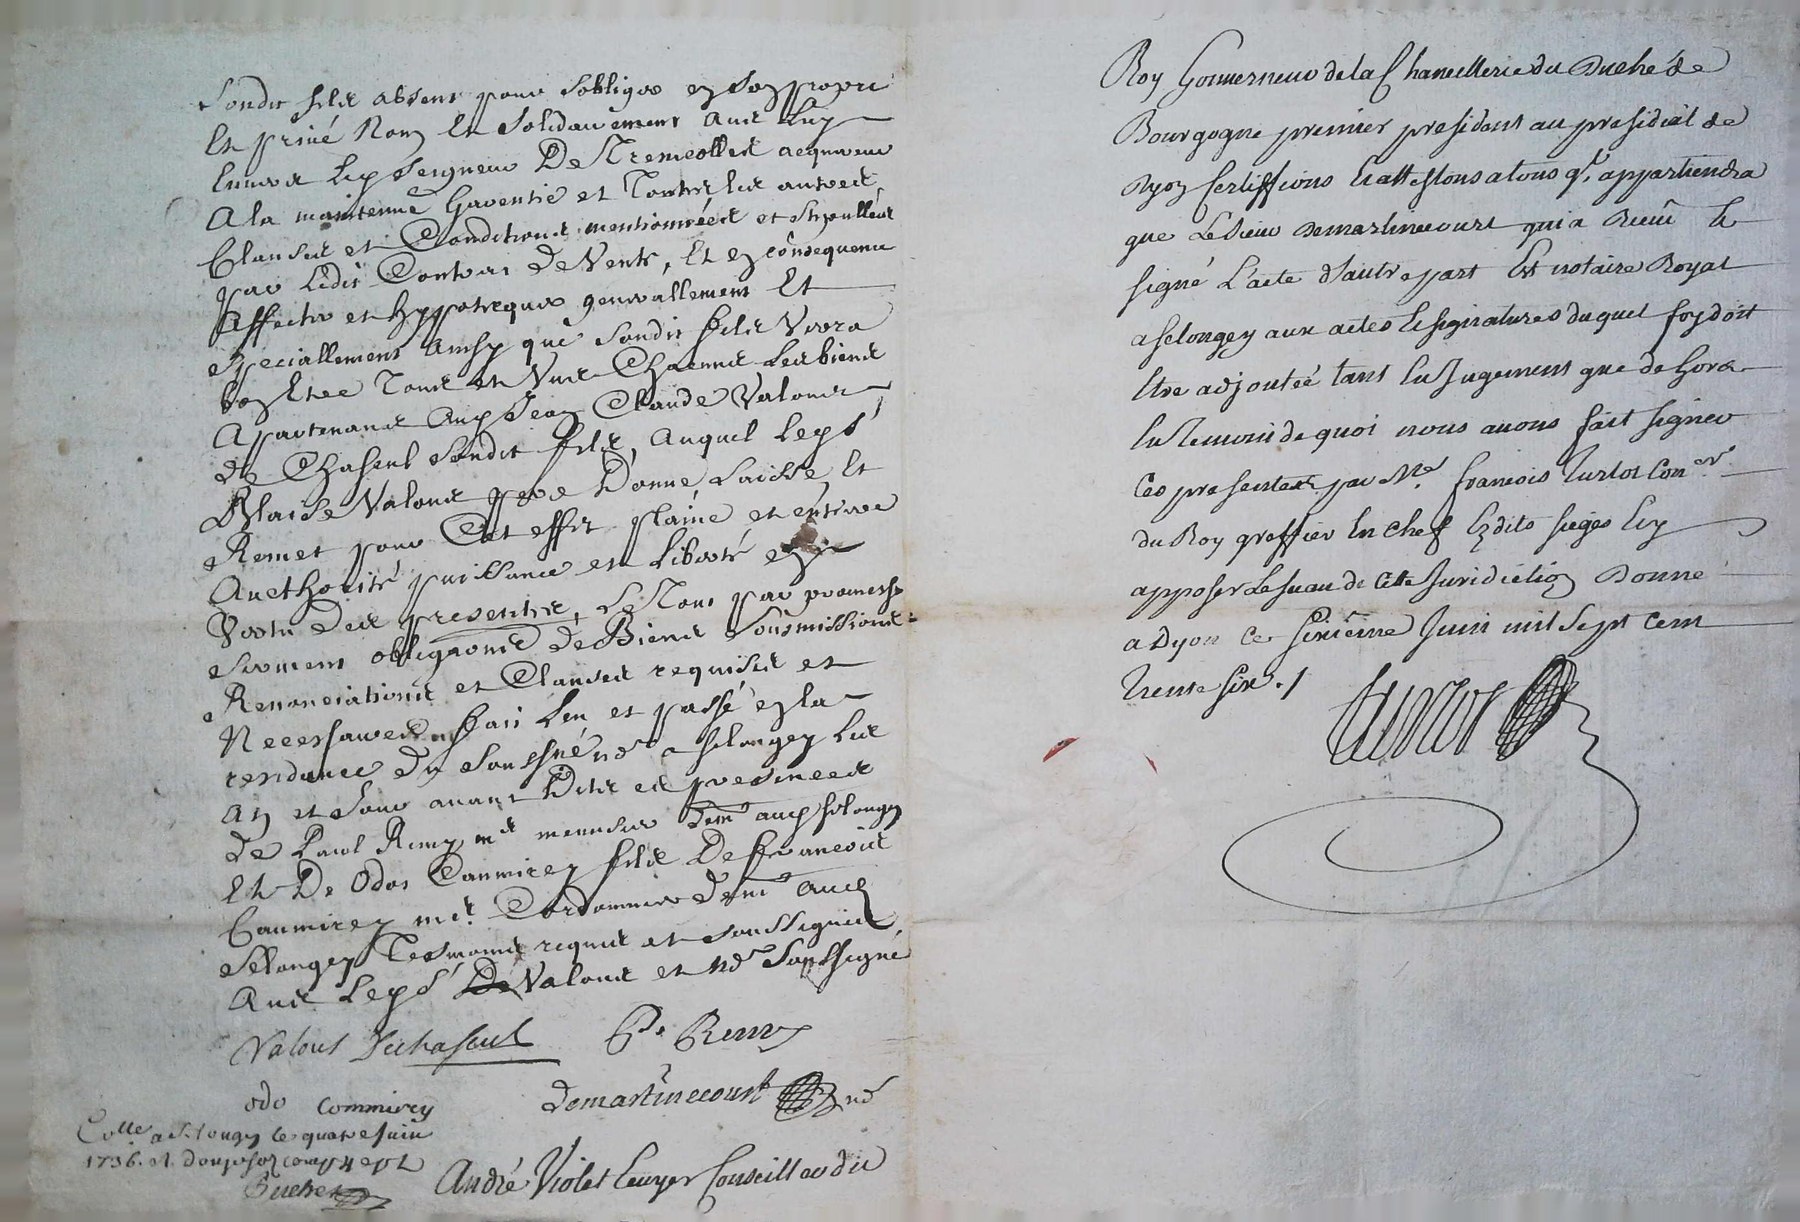 sondit fils absent pour sobliger en son propre
Et privé Nom Et Solidairement avec Luy
Envers Led Seigneur De Tremeolles acquereur
A la maintenue Garentie et Toutes les autres
Clauses et Conditions mentionnées et stipullées
par Ledit Contrat De Vente, Et en consequence
affecter et hypotequer generallement Et
specialement Ainsy que sondit fils Verra
bon Estre Tous et Uns Chacuns Les biens
Apartenants Aud Jean Claude Valous
de Chaseul sondit fils, Auquel Led Sr
Blaise Valous pere Donne Laisse Et
Remet pour Cet effet plaine et entiere
Aucthorité puissance et Liberté en
Vertu Des presentes, Le Tout par promesse
serment obligations De Biens Sousmissions
Renonciations et Clauses requises et
Necessaires fait Leu et passé en la
residence du soussigné nore a selongey Les
An et Jour avant Dits es presences
de Paul Remy me menusier demt aud selongey
Et De Odot Commirey fils De francois
Commirey me Cordonnier Demt aud
Selongey Tesmoins requis et soussignés
Avec Led Sr Valous et nore soussigné
Valous Dechaseul P. Remy
odo Commirey Demartinecourt nore
Collé a Selongey le quatre Juin
1736. et
André Violet Ecuyer Conseiller du
Roy Gouverneur de la Chancellerie du Duché de
Bourgogne premier president au presidial de
Dijon Certiffions Et attestons a tous ql appartiendra
que Le Sieur Demartinecourt qui a Receû Et
signé L'acte d'autre part Est notaire Royal
a selongey aux actes Et signatures duquel foy doit
Etre adjoutée tant En Jugement que dehors
En Temoin de quoi nous avons fait signer
Ces presentes par Me francois Turlot Coner
du Roy greffier En chef Esdits sieges Et y
apposer Le sceau de Cette Juridiction Donné
a Dijon Ce sixiême Juin mil Sept Cent
Trente six ./.
Turlot